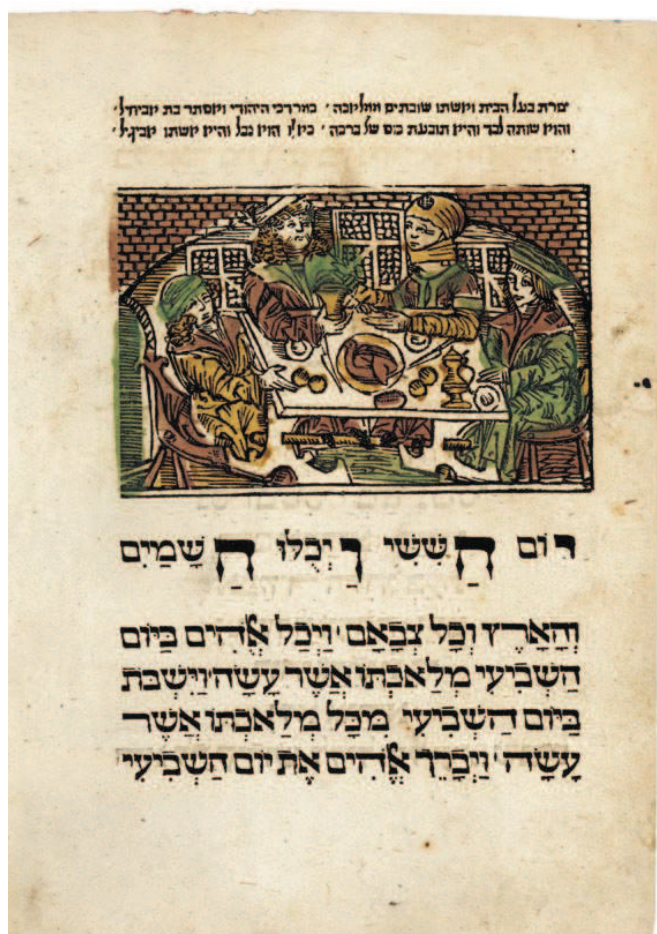 צורת בעל הבית ואשתו שובתים ממלאכה ׳ כמרדכי היהודי ואסתר בת אביחיל ׳
והוא שותה לבד והיא תובעת כוס של ברכה ׳ כאלו הוא נבל והיא אשתו אביגיל ׳
יוֹם הַשִּׁשִּׁי וַיְכֻלּוּ הַשָּׁמַיִם
וְהָאָרֶץ וְכָל צְבָאָם ׳ וַיְכַל אֱלֹהִים בַּיּוֹם
הַשְּׁבִיעִי מְלַאכְתּוֹ אֲשֶׁר עָשָׂה ׳ וַיִּשְׁבֹּת
בַּיּוֹם הַשְּׁבִיעִי מִכָּל מְלַאכְתּוֹ אֲשֶׁר
עָשָׂה ׳ וַיְבָרֵךְ אֱלֹהִים אֶת יוֹם הַשְּׁבִיעִי